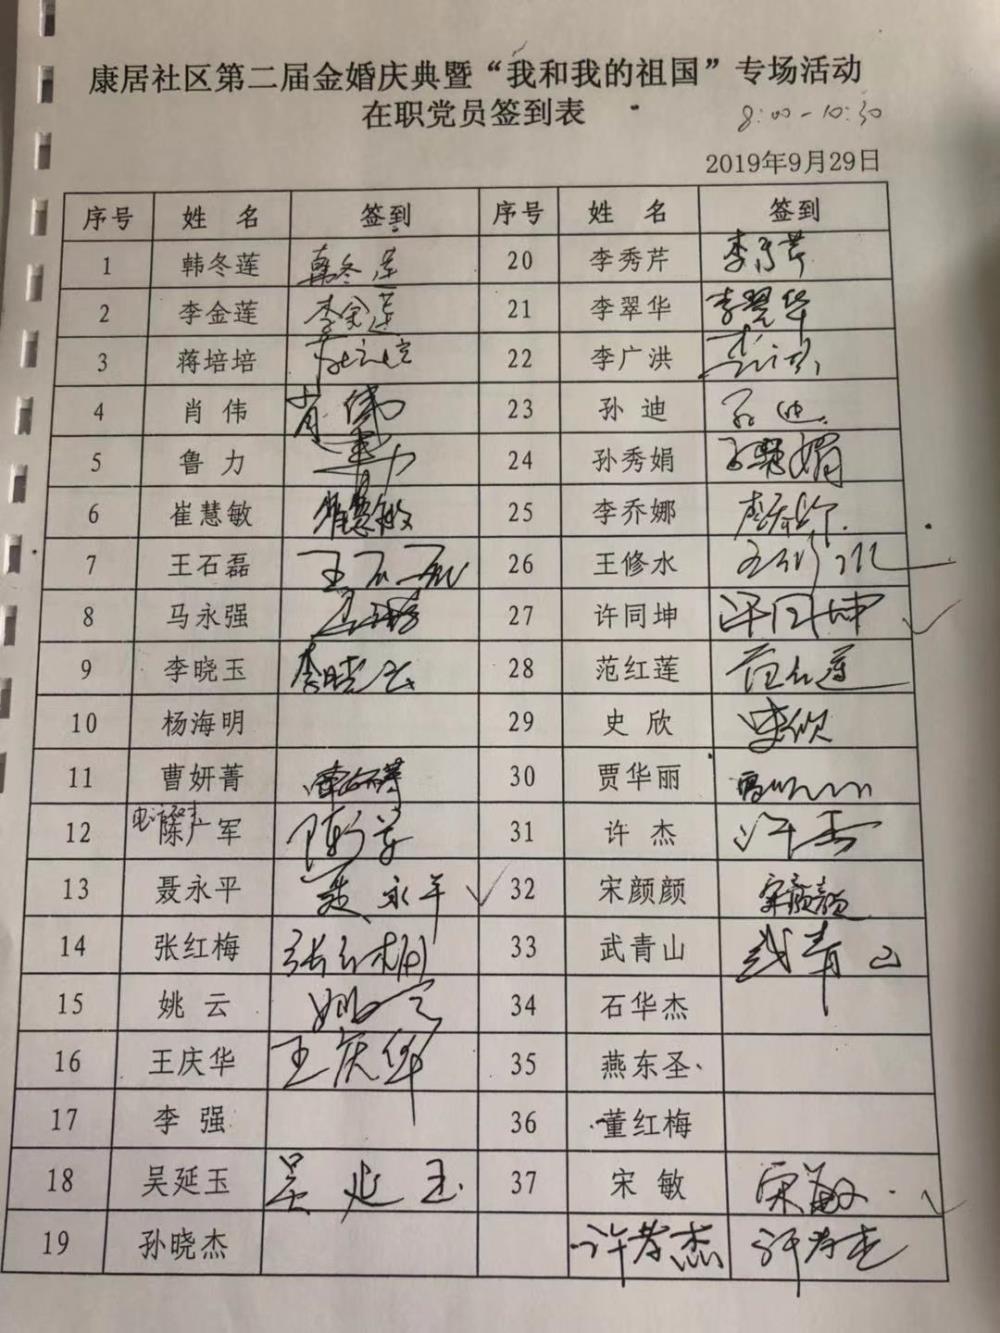 康居社区第二届金婚庆典暨“我和我的祖国”专场活动
在职党员签到表
8:00-10:30
2019年9月29日
序号 姓名 签到 序号 姓名 签到
1 韩冬莲 韩冬莲 20 李秀芹 李秀芹
2 李金莲 李金莲 21 李翠华 李翠华
3 蒋培培 蒋培培 22 李广洪 李广洪
4 肖伟 肖伟 23 孙迪 孙迪
5 鲁力 鲁力 24 孙秀娟 孙秀娟
6 崔慧敏 崔慧敏 25 李乔娜 李乔娜
7 王石磊 王石磊 26 王修水 王修水
8 马永强 马永强 27 许同坤 许同坤
9 李晓玉 李晓玉 28 范红莲 范红莲
10 杨海明 29 史欣 史欣
11 曹妍菁 曹妍菁 30 贾华丽 贾华丽
12 陈广军 陈广军 31 许杰 许杰
13 聂永平 聂永平 32 宋颜颜 宋颜颜
14 张红梅 张红梅 33 武青山 武青山
15 姚云 姚云 34 石华杰
16 王庆华 王庆华 35 燕东圣
17 李强 36 董红梅
18 吴延玉 吴延玉 37 宋敏 宋敏
19 孙晓杰 许孝杰 许孝杰